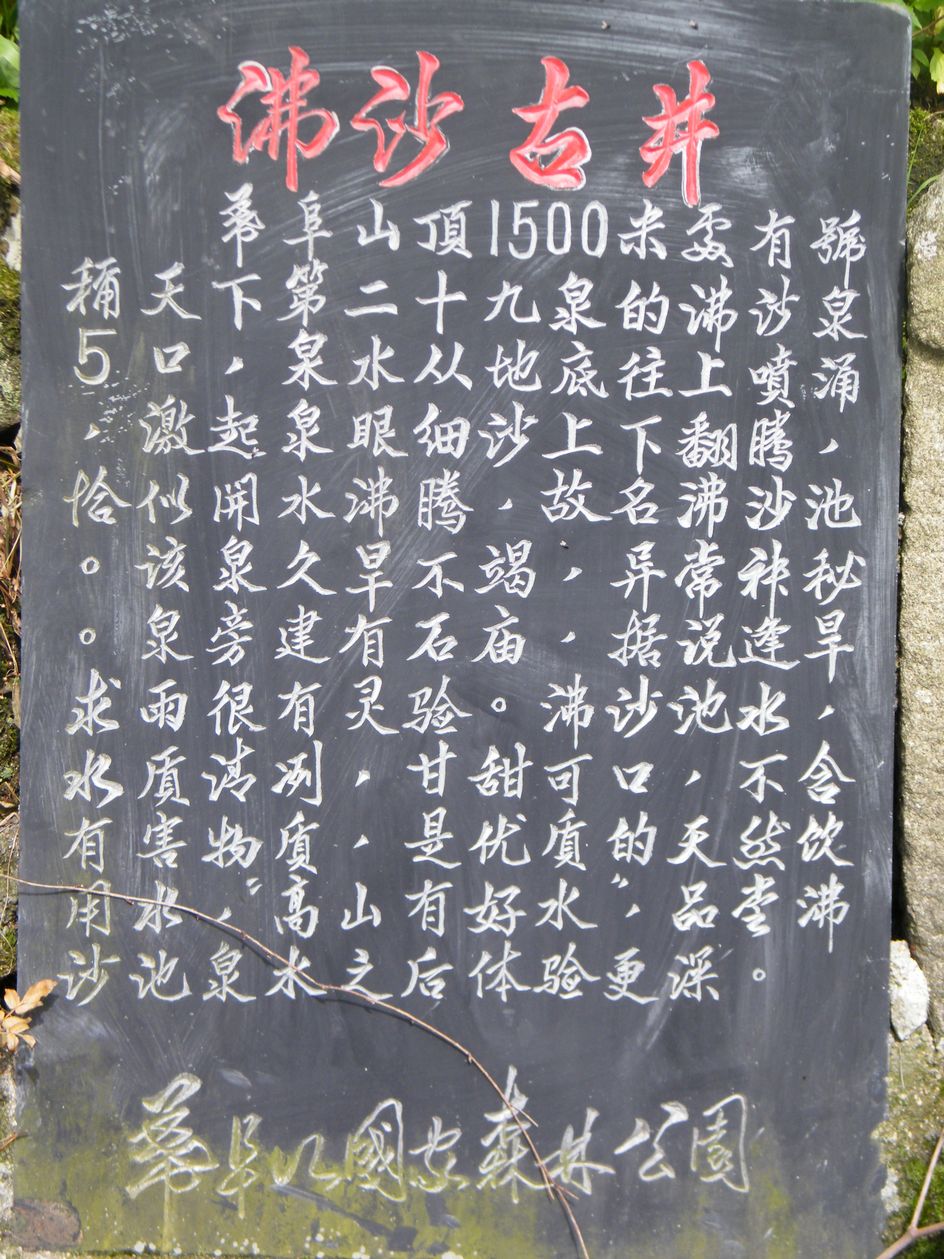 沸沙古井
華阜山頂1500米處有號
稱天下第二十九泉的沸沙泉
5口，泉水从地底往上噴涌
，激起泉眼细沙上下翻騰，
恰似開水沸腾，故名沸沙池
。该泉久旱不竭，异常神秘
。泉旁建有石庙，据说逢旱
求雨很有灵验。沸沙池水，
水质清冽，甘甜可口，不含
有害物质，是优质的天然饮
用水，“高山有好水”，品尝沸
沙池泉水之后体验更深。
華阜山國家森林公園